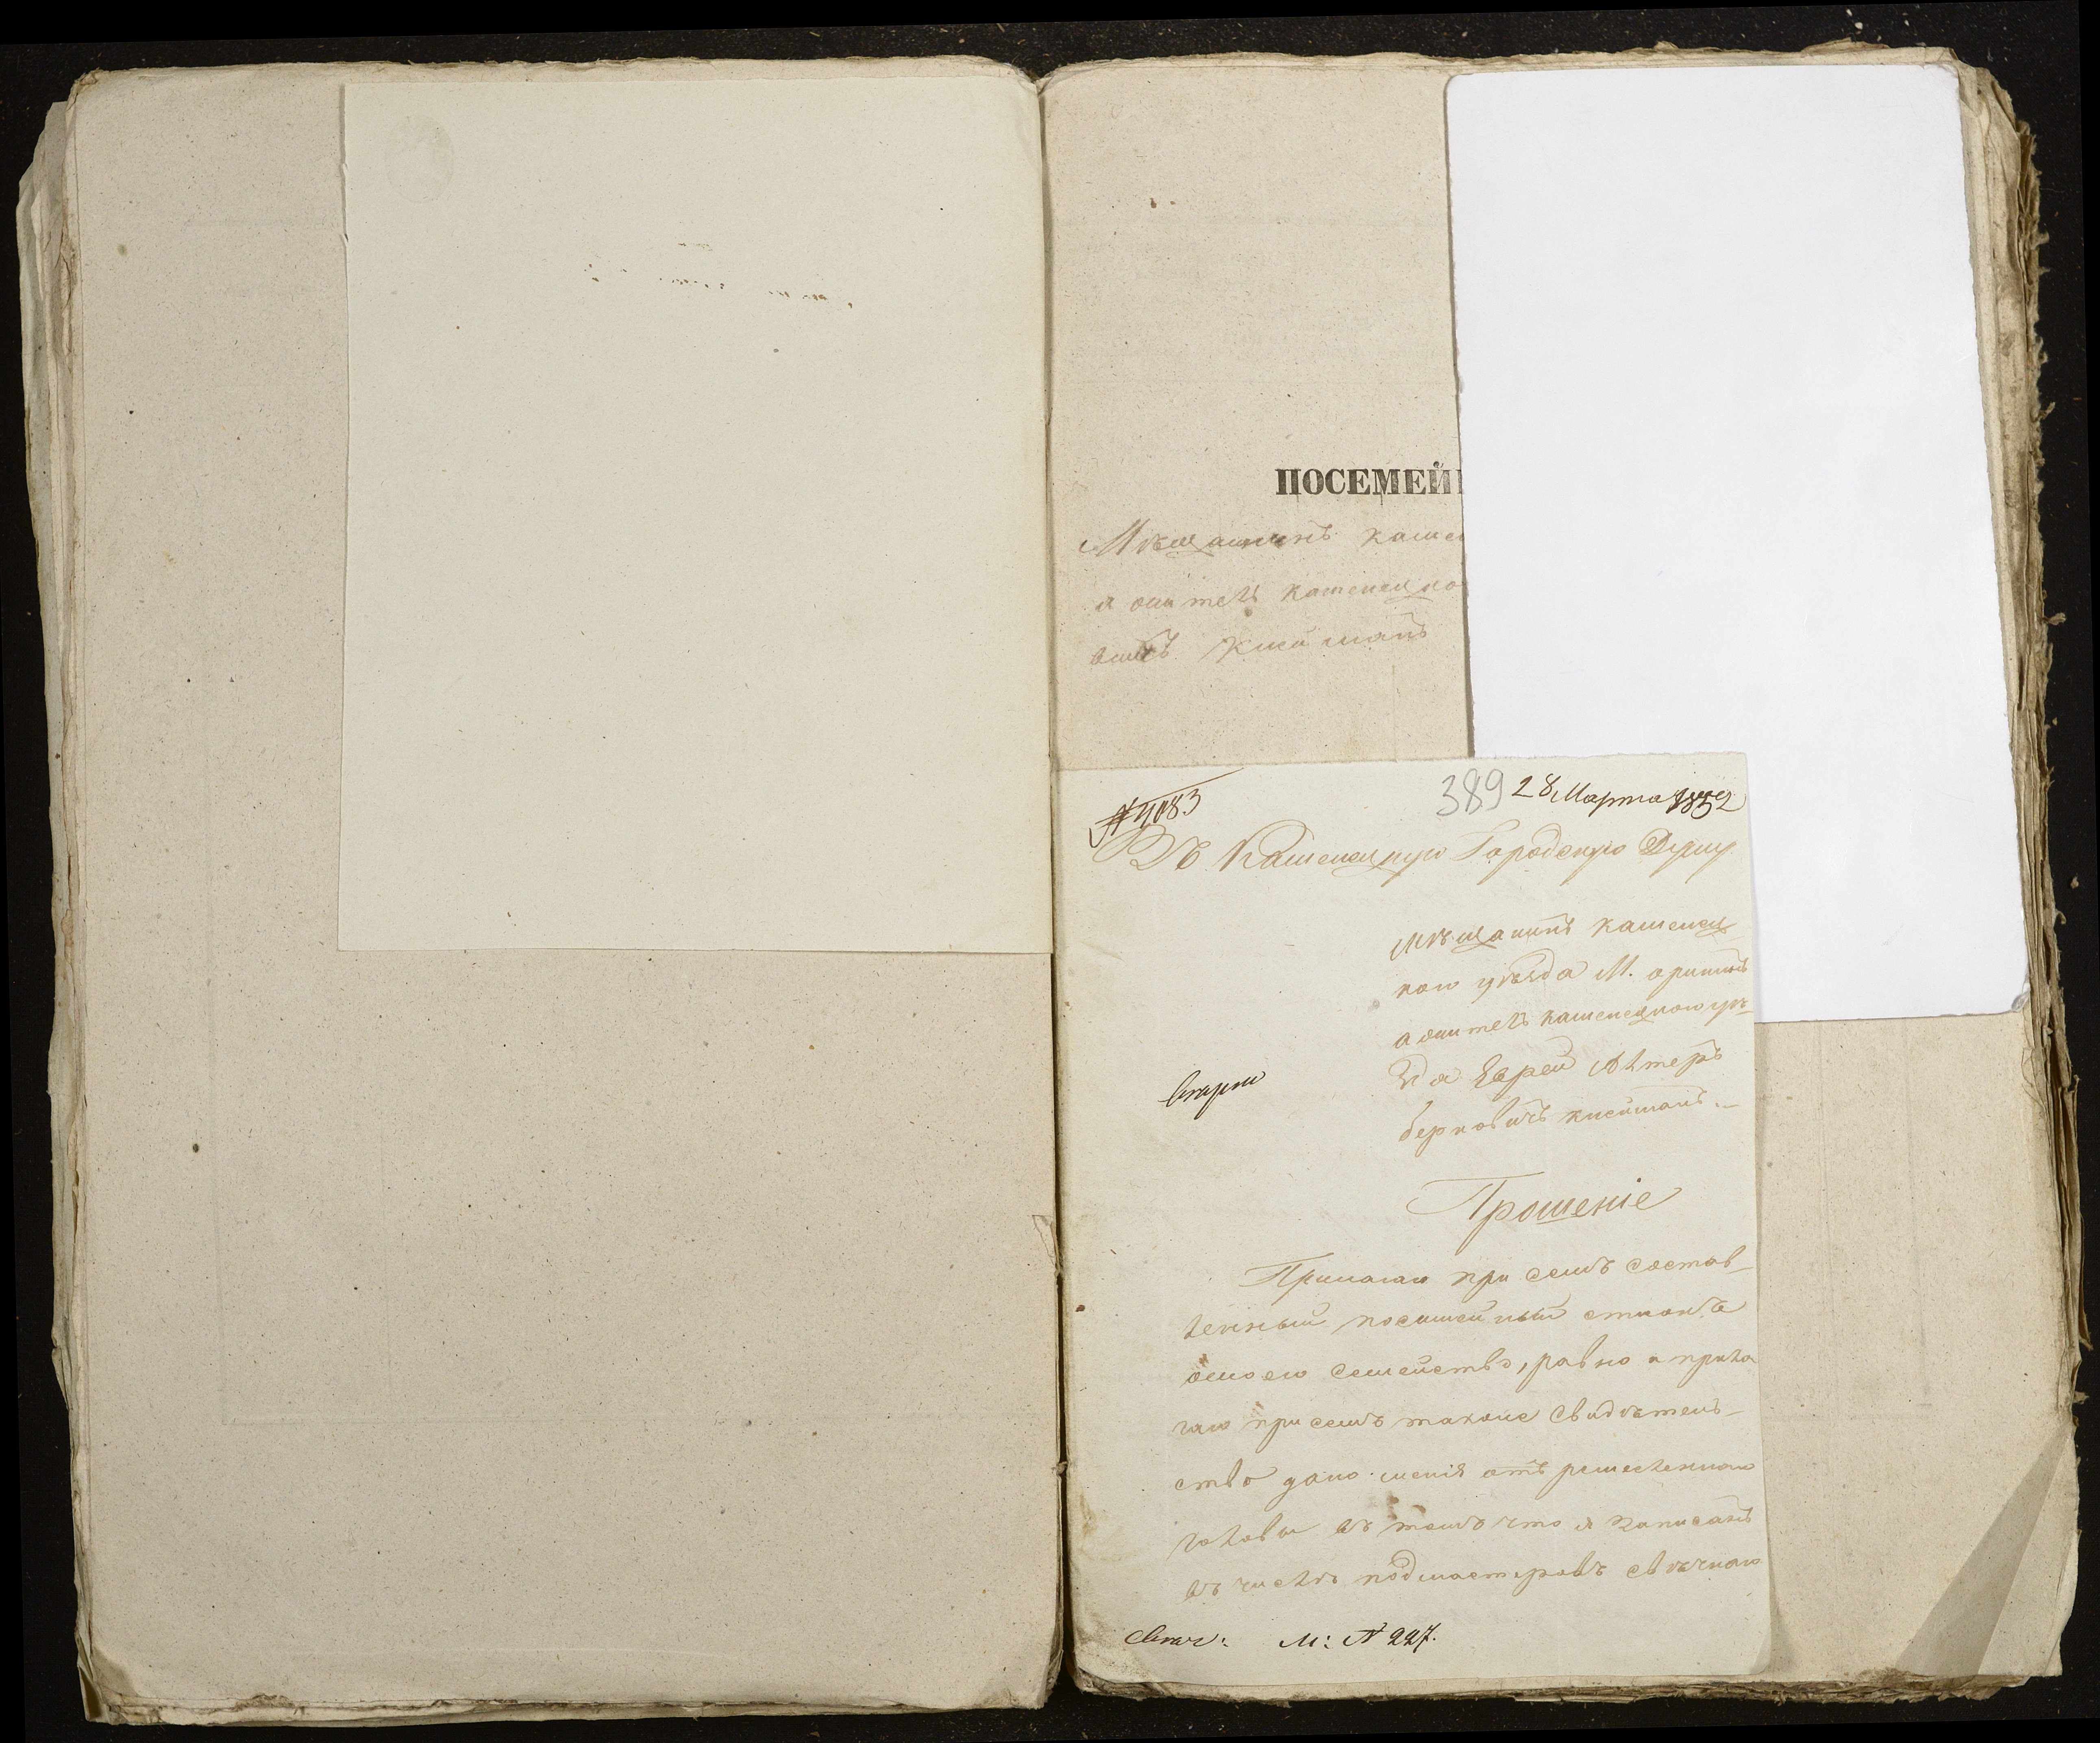 ПОСЕМЕЙ
Мѣщанинъ камен
а житель каменецко
Кисйманъ
№ 4083
389 28 Марта 1852
Въ Каменецкую Городскую Думу
Мѣщанинъ каменец
кого уѣзда М.
а житель каменецкого уѣ
зда Еврей Лтеръ
берковичъ кисйманъ.
Прошеніе
Прилагаю при семъ состав-
ленный посимейный списокъ
моего семейство, равно и прила
гаю при семъ также свидѣтель-
ство дано меня отъ ремесленного
головы въ томъ что я записанъ
въ числѣ подмастеровъ свѣчного
М: № 227.